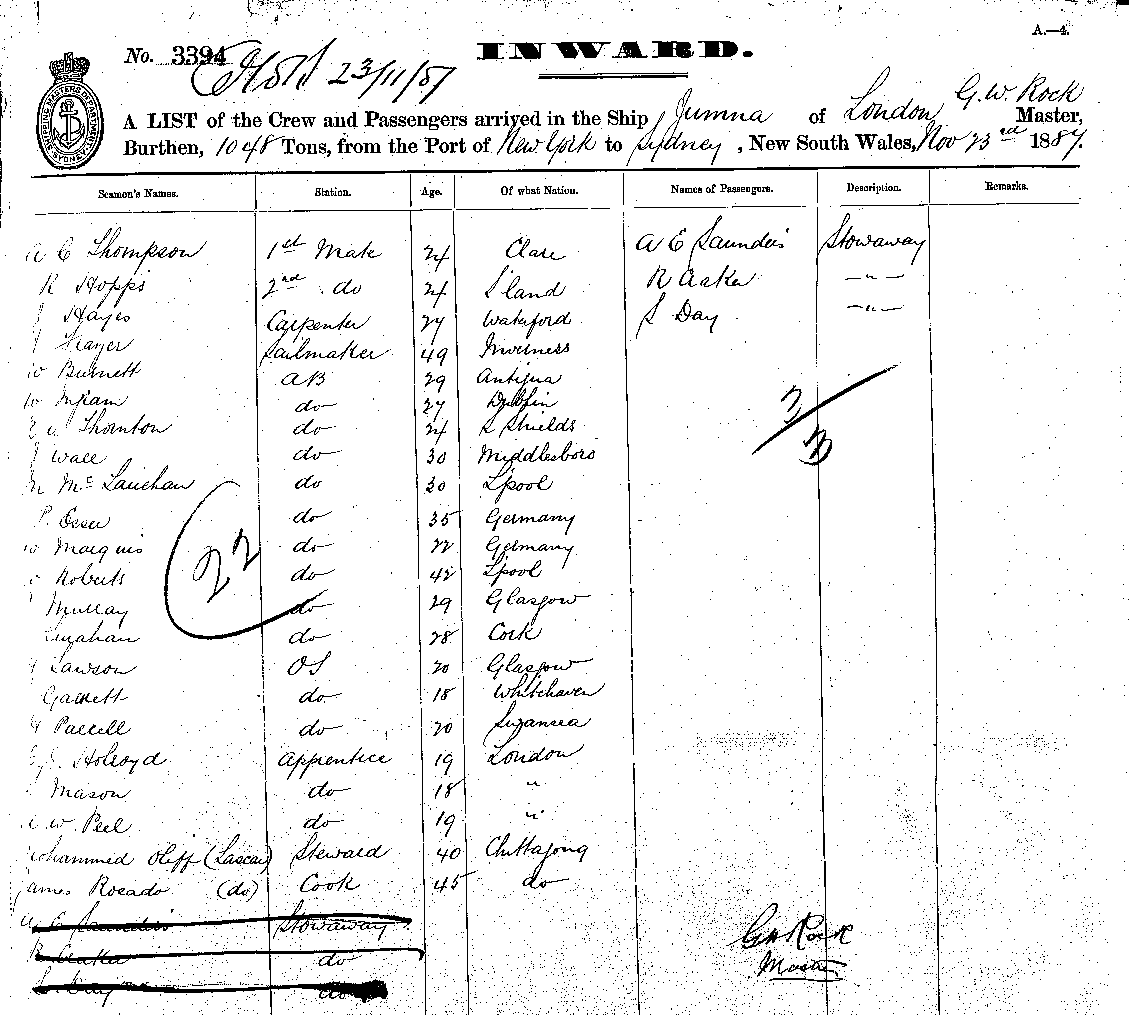 A.—4.
No. 3394 INWARD.
23/11/87
G. W. Rock
A LIST of the Crew and Passengers arrived in the Ship Jumna of London, Master,
Burthen, 1048 Tons, from the Port of New York to Sydney, New South Wales, Nov 23rd 1887.
SHIPPING MASTERS DEPARTMENT SYDNEY
Seamen's Names. Station. Age. Of what Nation. Names of Passengers. Description. Remarks.
C Thompson 1st Mate 24 Clare A E Saunders Stowaway
R Hopps 2nd do 24 S'land R Aaker —"—
J Hayes Carpenter 27 Waterford S Day —"—
Sailmaker 49 Inverness
W Burnett AB 29 Antigua
W do 27 Dublin
Thornton do 24 S Shields
J Wall do 30 Middlesboro
Mc do 30 L'pool
P. Esser do 35 Germany
W Marquis do 22 Germany
Roberts do 42 L'pool
Murray do 29 Glasgow
do 28 Cork
Lawson OS 20 Glasgow
Garrett do 18 Whitehaven
Parcell do 20 Swansea
Holroyd Apprentice 19 London
Mason do 18 "
W. Peel do 19 "
Oliff (Lascar) Steward 40 Chittagong
James Rosado (do) Cook 45 do
Saunders Stowaway
do
Day do
22
3/3
G W Rock
Master